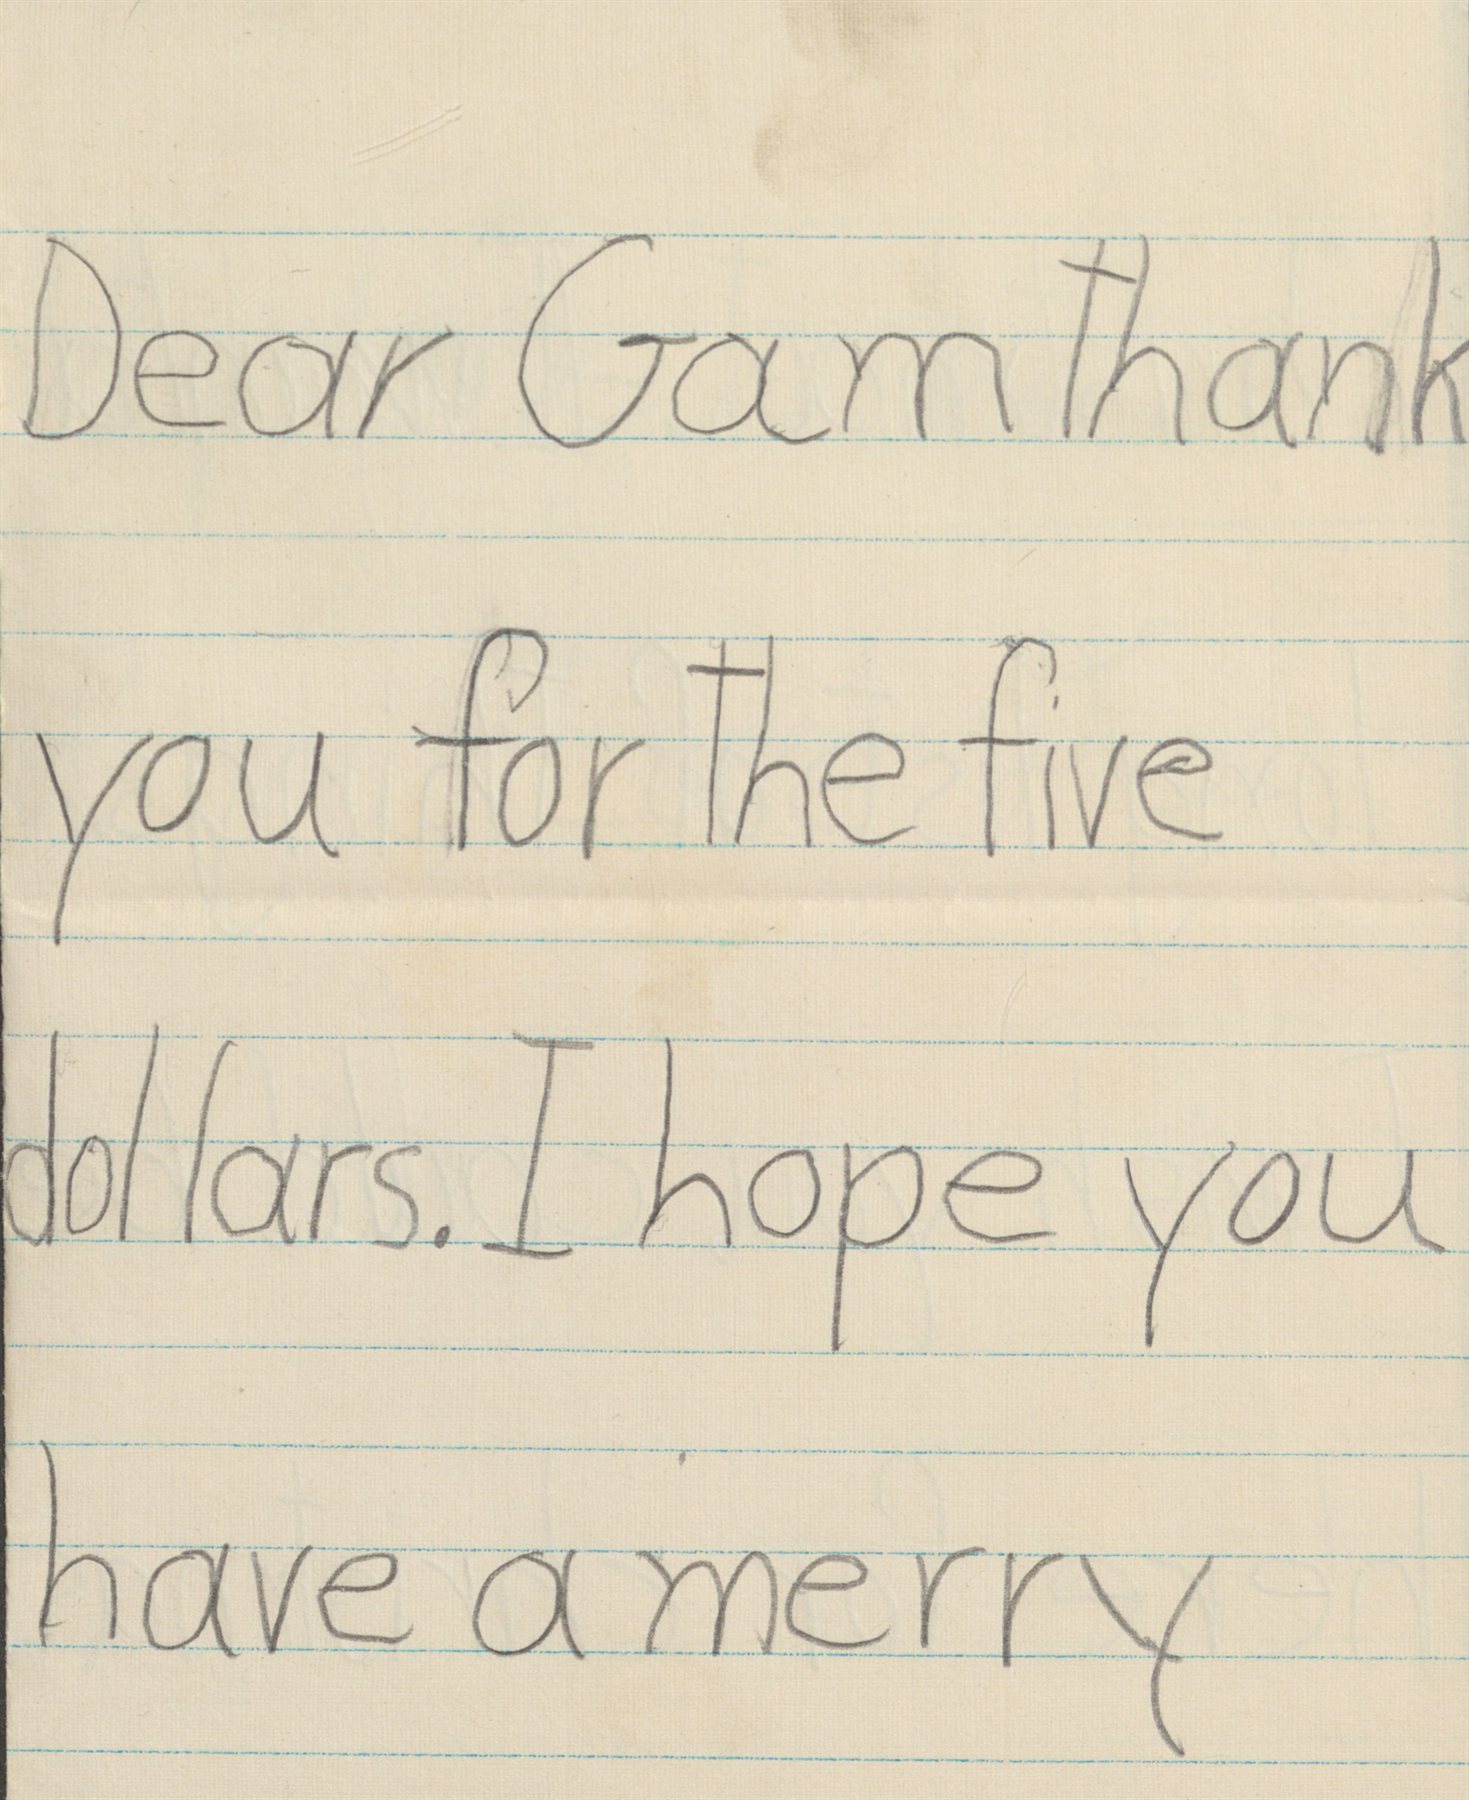 Dear Gam thank
you for the five
dollars. I hope you
have a merry